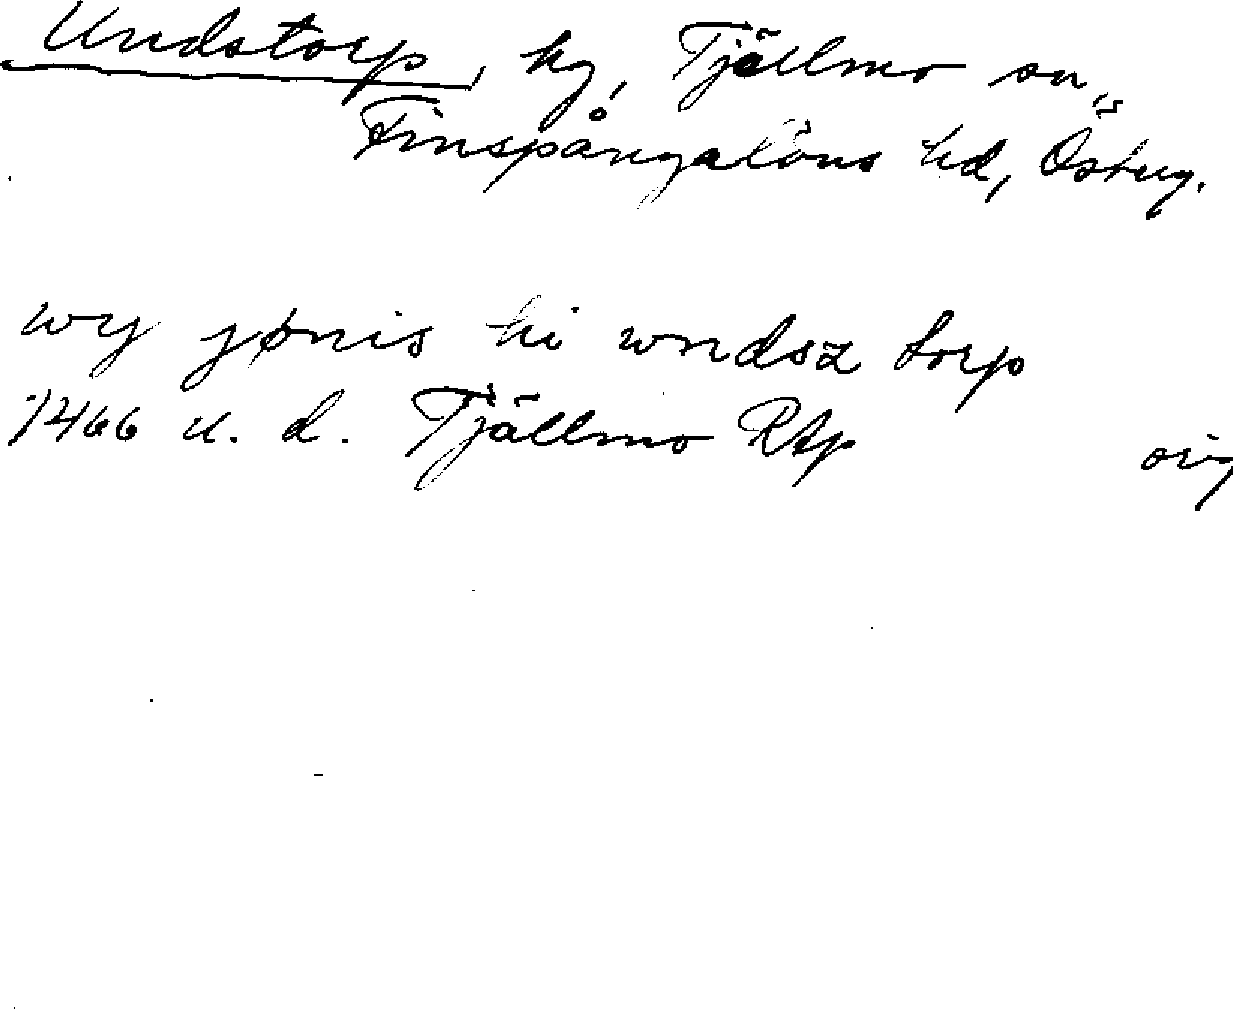 Undstorp, hg, Tjällmo sn,
Finspångaläns hd, Österg.
wy jønis hi wndsz torp
1466 u. d. Tjällmo RAp orig